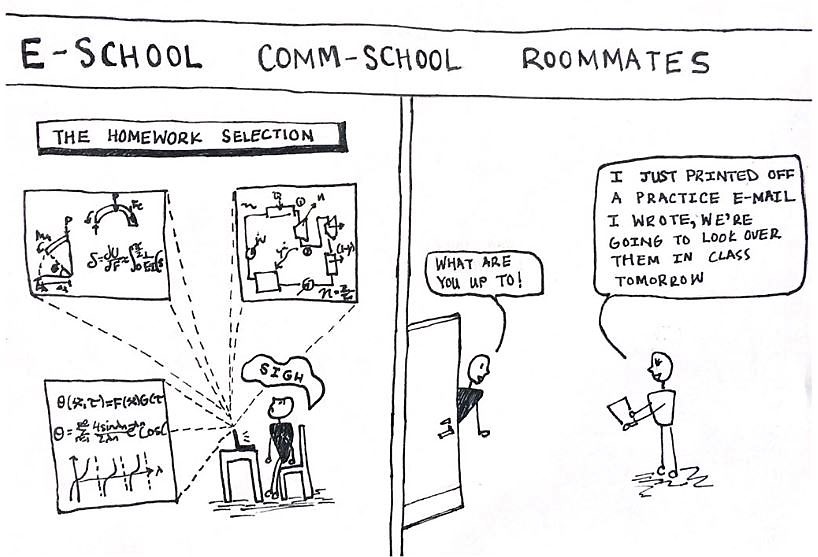 E-SCHOOL COMM-SCHOOL ROOMMATES
THE HOMEWORK SELECTION
P
P
δ = dU/dF ≈
n
n
(1-y)
θ(x,τ)=F(x)G(τ
θ=
4sinλn
2λn
Cos(
λ
SIGH
WHAT ARE
YOU UP TO!
I JUST PRINTED OFF
A PRACTICE E-MAIL
I WROTE, WE'RE
GOING TO LOOK OVER
THEM IN CLASS
TOMORROW